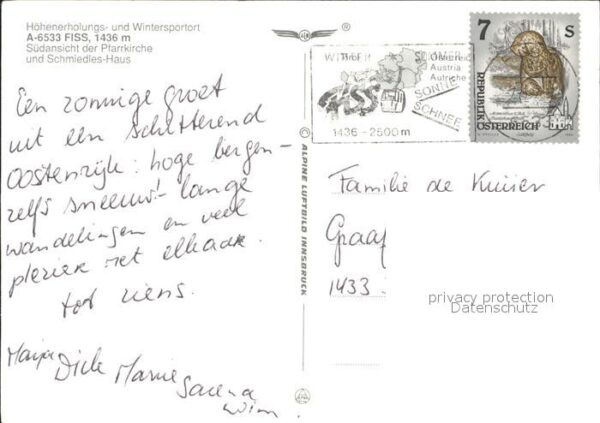 Höhenerholungs- und Wintersportort
A-6533 FISS, 1436 m
Südansicht der Pfarrkirche
und Schmiedles-Haus
Een zonnige groet
uit een schitterend
Oostenrijk: hoge bergen -
zelfs sneeuw! - lange
wandelingen en veel
plezier met elkaar.
tot ziens.
Dick Marije
Wim
ALPINE LUFTBILD INNSBRUCK
WINTER
Tirol
SOMMER
Österreich
Austria
Autriche
FISS
SONNE
SCHNEE
1436 - 2500 m
7 S
REPUBLIK
ÖSTERREICH
Familie de Kuiser
Graaf
1433.
privacy protection
Datenschutz